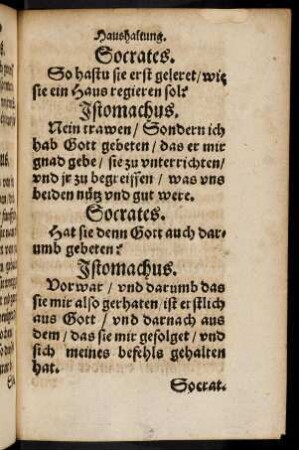 Haushaltung.
Socrates.
So hastu sie erst geleret/wie
sie ein Haus regieren sol?
Istomachus.
Nein trawen/Sondern ich
hab Gott gebeten/das er mir
gnad gebe/sie zu vnterrichten/
vnd jr zu begreiffen/was vns
beiden nütz vnd gut were.
Socrates.
Hat sie denn Gott auch dar-
umb gebeten?
Istomachus.
Vorwar/vnd darumb das
sie mir also gerhaten/ist erstlich
aus Gott/vnd darnach aus
dem/das sie mir gefolget/vnd
sich meines befehls gehalten
hat.
Socrat.